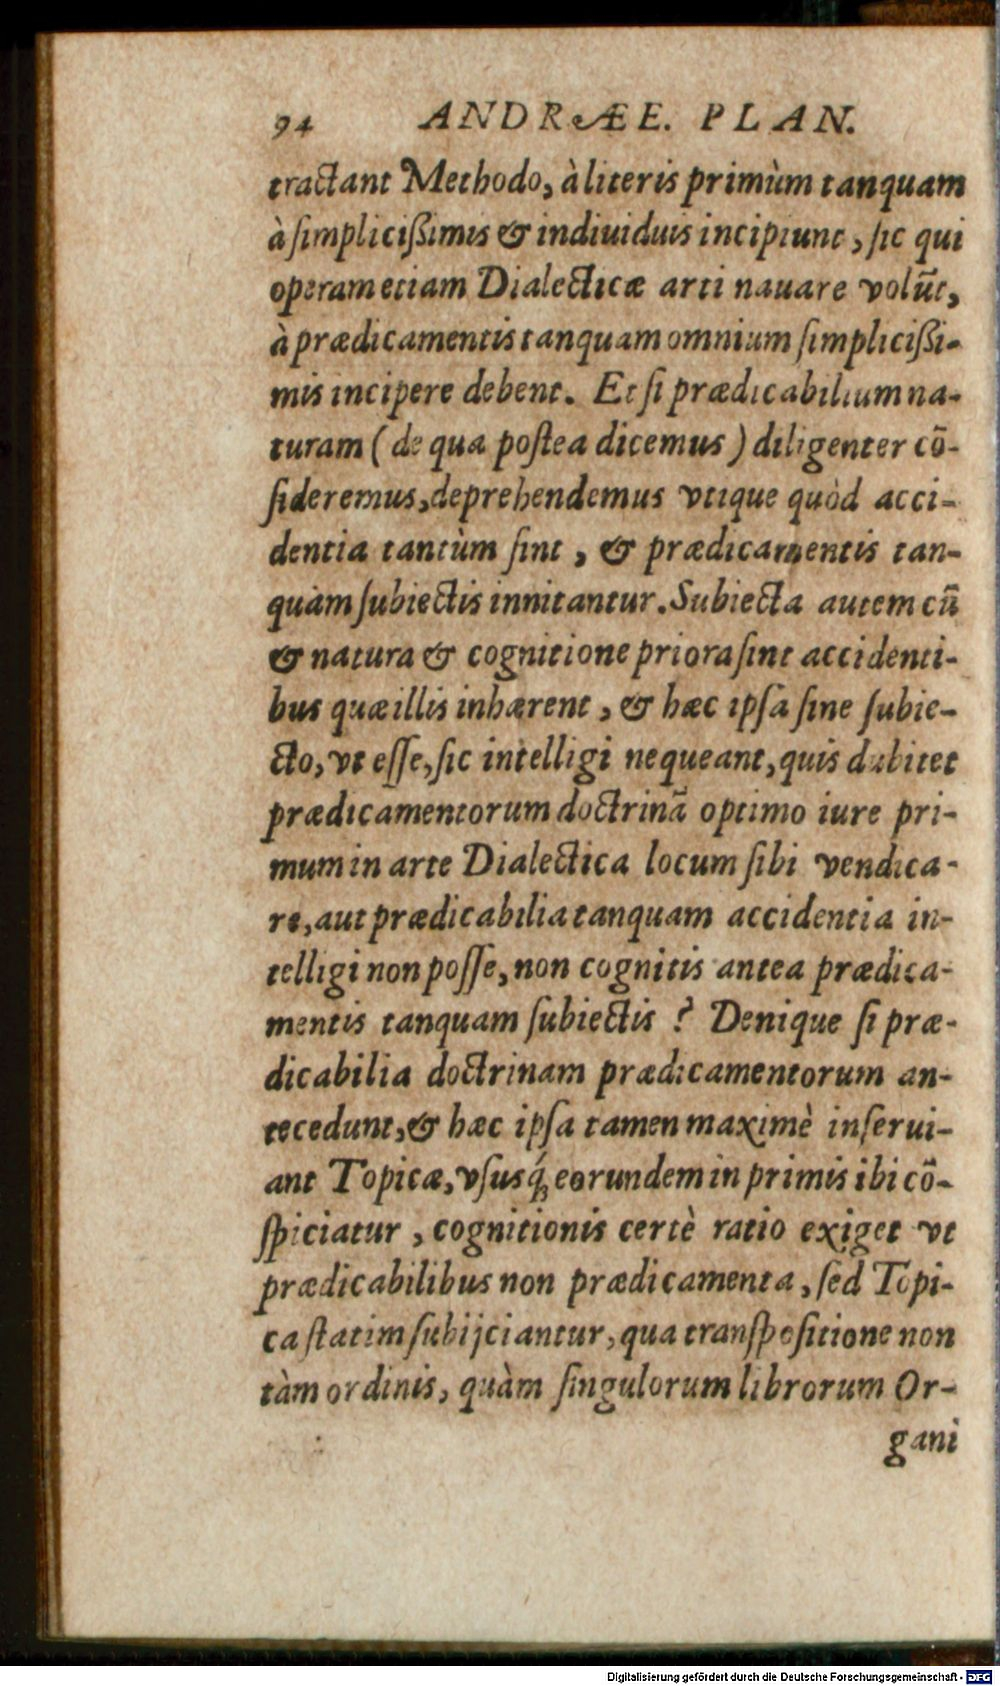 94 ANDRÆE. PLAN.
tractant Methodo, à literis primùm tanquam
à ſimplicißimis & indiuiduis incipiunt, ſic qui
operam etiam Dialecticæ arti nauare volũt,
à prædicamentis tanquam omnium ſimplicißi-
mis incipere debent. Et ſi prædicabilium na-
turam (de qua poſtea dicemus) diligenter cõ-
ſideremus, deprehendemus vtique quòd acci-
dentia tantùm ſint, & prædicamentis tan-
quàm ſubiectis innitantur. Subiecta autem cũ
& natura & cognitione priora ſint accidenti-
bus quæ illis inhærent, & hæc ipſa ſine ſubie-
cto, vt eſſe, ſic intelligi nequeant, quis dubitet
prædicamentorum doctrinã optimo iure pri-
mum in arte Dialectica locum ſibi vendica-
re, aut prædicabilia tanquam accidentia in-
telligi non poſſe, non cognitis antea prædica-
mentis tanquam ſubiectis? Denique ſi præ-
dicabilia doctrinam prædicamentorum an-
tecedunt, & hæc ipſa tamen maximè inſerui-
ant Topicæ, vſusq́; eorundem in primis ibi cõ-
ſpiciatur, cognitionis certè ratio exiget vt
prædicabilibus non prædicamenta, ſed Topi-
ca ſtatim ſubijciantur, qua tranſpoſitione non
tàm ordinis, quàm ſingulorum librorum Or-
gani
Digitalisierung gefördert durch die Deutsche Forschungsgemeinschaft - DFG